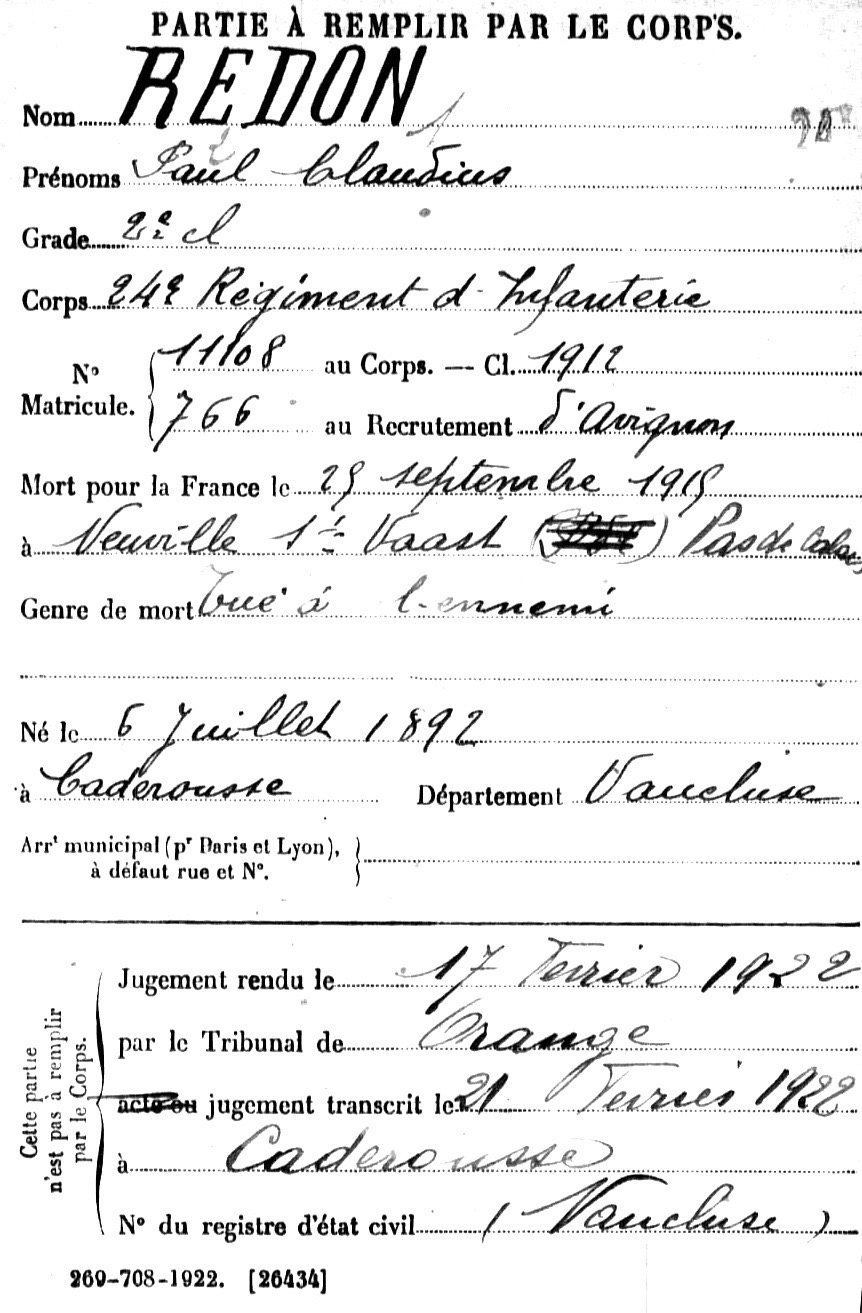 PARTIE À REMPLIR PAR LE CORPS.
Nom REDON
Prénoms Paul Claudius
Grade 2e cl
Corps 24e Régiment d'Infanterie
No Matricule. 11108 au Corps. — Cl. 1912
766 au Recrutement d'Avignon
Mort pour la France le 25 septembre 1915
à Neuville St Vaast ( ) Pas de Calais
Genre de mort Tué à l'ennemi
Né le 6 Juillet 1892
à Caderousse Département Vaucluse
Arrt municipal (pr Paris et Lyon),
à défaut rue et No.
Cette partie
n'est pas à remplir
par le Corps.
Jugement rendu le 17 Février 1922
par le Tribunal de Orange
acte ou jugement transcrit le 21 Février 1922
à Caderousse
No du registre d'état civil (Vaucluse)
269-708-1922. [26434]